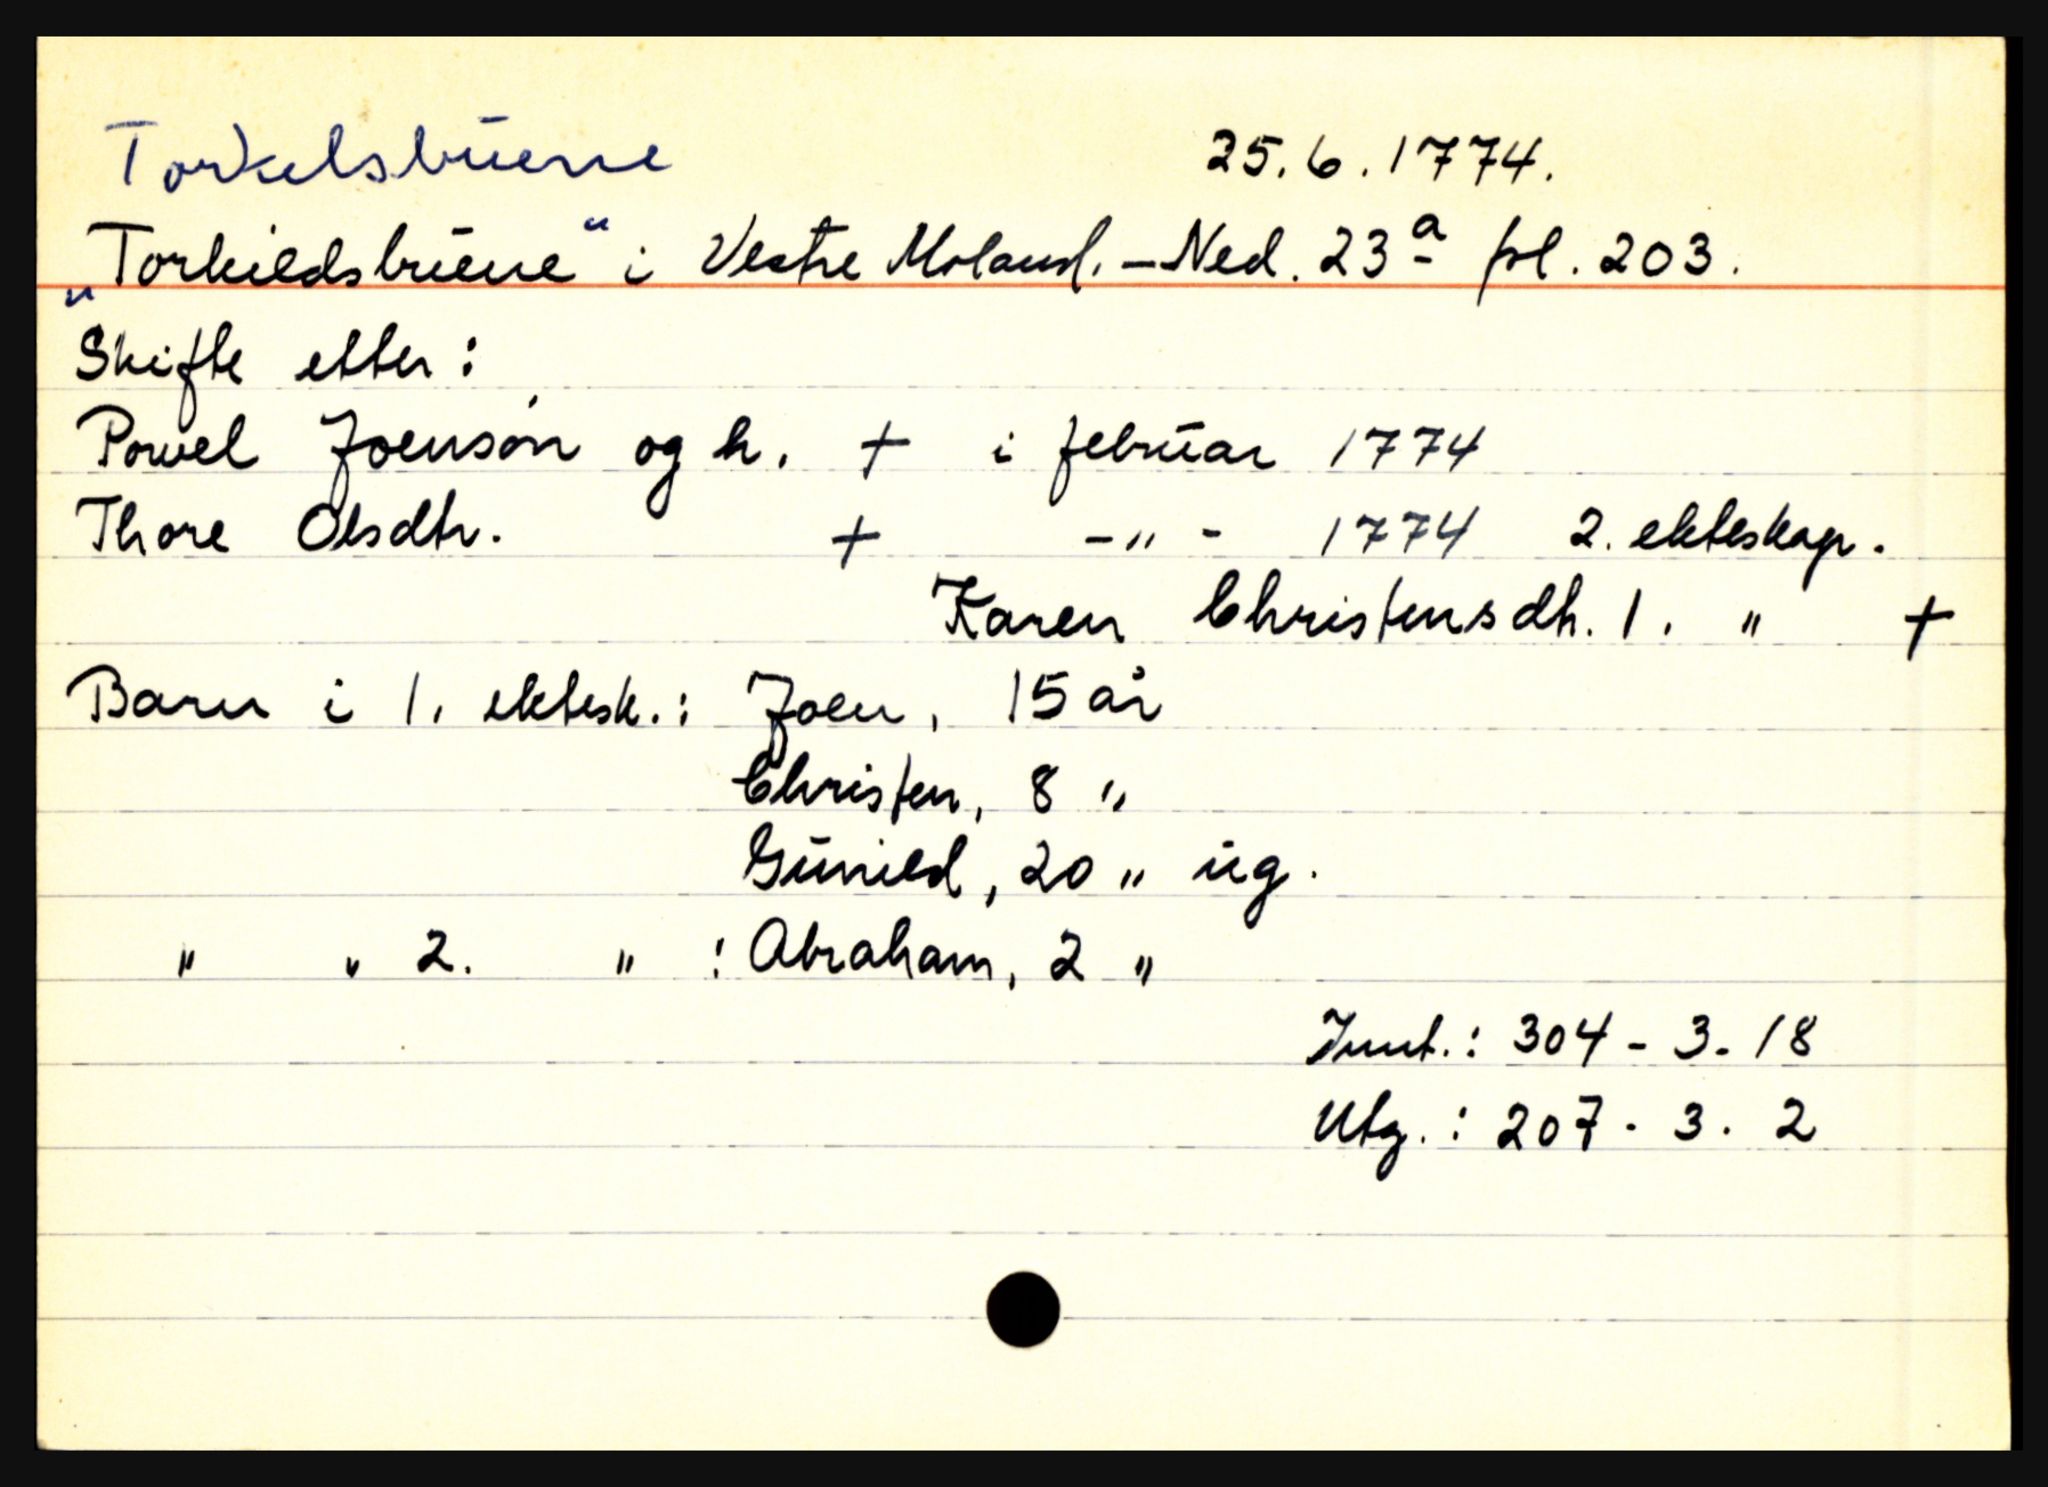 Torkelsbuene 25.6.1774.
"Torkildsbuene" i Vestre Moland. - Ned. 23a fol. 203.
Skifte etter:
Powel Joensøn og h. + i februar 1774
Thore Olsdtr. + -"- 1774 2. ekteskap.
Karen Christensdtr. 1. " +
Barn i 1. ektesk.: Joen, 15 år
Christen, 8 "
Gunild, 20 " ug.
" " 2. " : Abraham, 2 "
Innt.: 304 - 3 - 18
Utg.: 207 - 3 - 2